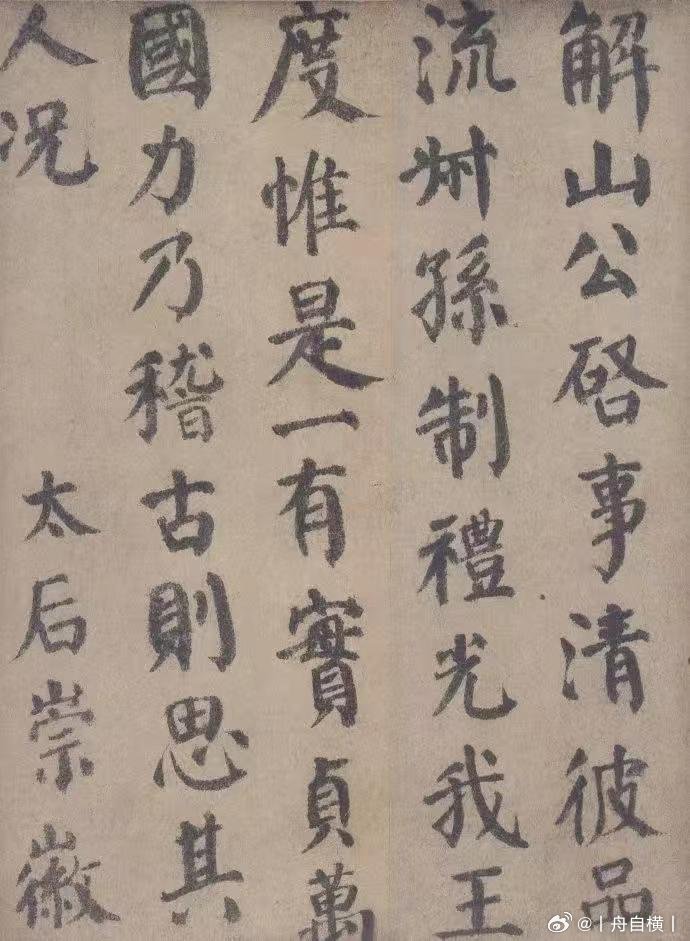 解山公啓事清彼品
流卅孫制禮光我王
度惟是一有實貞萬
國力乃稽古則思其
人况 太后崇徽
@丨舟自横丨